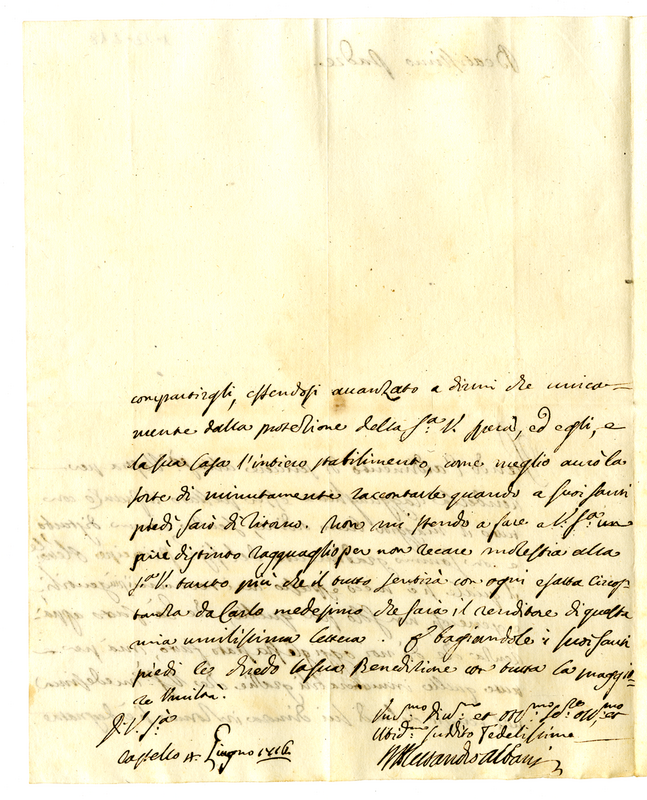 compartirgli, essendosi avanzato a dirmi che unica=
mente dalla protezione della S.ª V. spera, ed egli, e
la sua Casa l'intiero stabilimento, come meglio avrò la
sorte di minutamente raccontarle quando a suoi santi
piedi sarò di ritorno. Non mi stendo a fare a V. S.ª un
più distinto ragguaglio per non recare molestia alla
S.ª V. tanto più che il tutto sentirà con ogni esatta Circos=
tanza da Carlo medesimo che sarà il renditore di questa
mia umilissima lettera. E bagiandole i suoi santi
piedi le chiedo la sua Benedizione con tutta la maggio=
re Umiltà.
D. V. S.ª
Um.mo Div.mo et Obl.mo
Ubid.mo suddito Fedelissimo
Castello Giugno 1716
Alessandro Albani